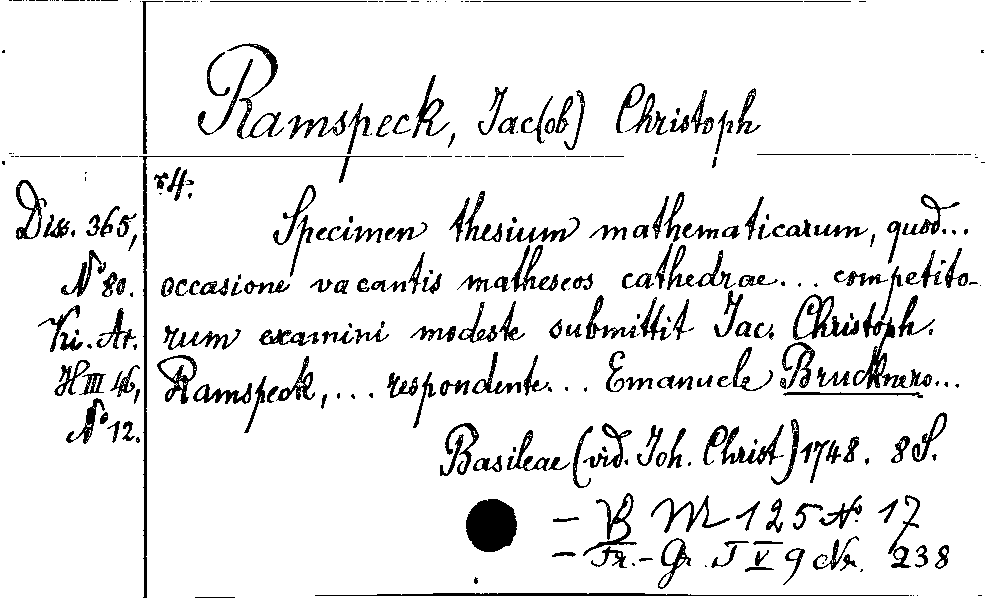 Ramspeck, Jac(ob) Christoph
4.
Diss. 365,
No 80.
Ki. Ar.
H III 46,
No 12.
Specimen thesium mathematicarum, quod...
occasione vacantis matheseos cathedrae... competito-
rum examini modeste submittit Jac. Christoph.
Ramspeck, ... respondente... Emanuele Brucknero...
Basileae (vid. Joh. Christ) 1748. 8 S.
— B M 125 No. 17
— Fr.-Gr. I V 9 Nr. 238